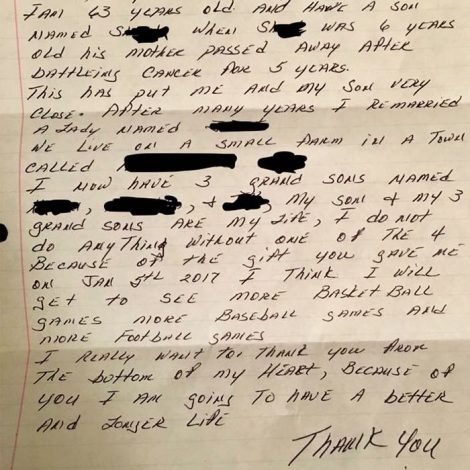 I AM 63 YEARS OLD AND HAVE A SON
NAMED S WHEN S WAS 6 YEARS
OLD HIS MOTHER PASSED AWAY AFTER
BATTLEING CANCER FOR 5 YEARS.
THIS HAS PUT ME AND MY SON VERY
CLOSE. AFTER MANY YEARS I REMARRIED
A LADY NAMED
WE LIVE ON A SMALL FARM IN A TOWN
CALLED
I NOW HAVE 3 GRAND SONS NAMED
, , & MY SON & MY 3
GRAND SONS ARE MY LIFE, I DO NOT
DO ANYTHING WITHOUT ONE OF THE 4
BECAUSE OF THE GIFT YOU GAVE ME
ON JAN 5TH 2017 I THINK I WILL
GET TO SEE MORE BASKETBALL
GAMES MORE BASEBALL GAMES AND
MORE FOOTBALL GAMES
I REALLY WANT TO THANK YOU FROM
THE BOTTOM OF MY HEART, BECAUSE OF
YOU I AM GOING TO HAVE A BETTER
AND LONGER LIFE
THANK YOU